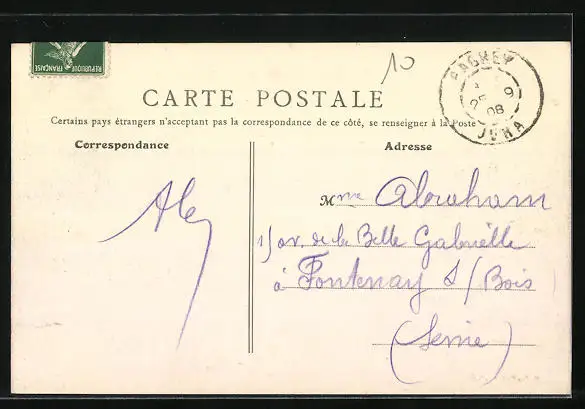 REPUBLIQUE FRANÇAISE
10
JURA
9
08
CARTE POSTALE
Certains pays étrangers n'acceptant pas la correspondance de ce côté, se renseigner à la Poste
Correspondance
Adresse
Mme Abraham
15 av. de la Belle Gabrielle
à Fontenay s/Bois
(Seine)